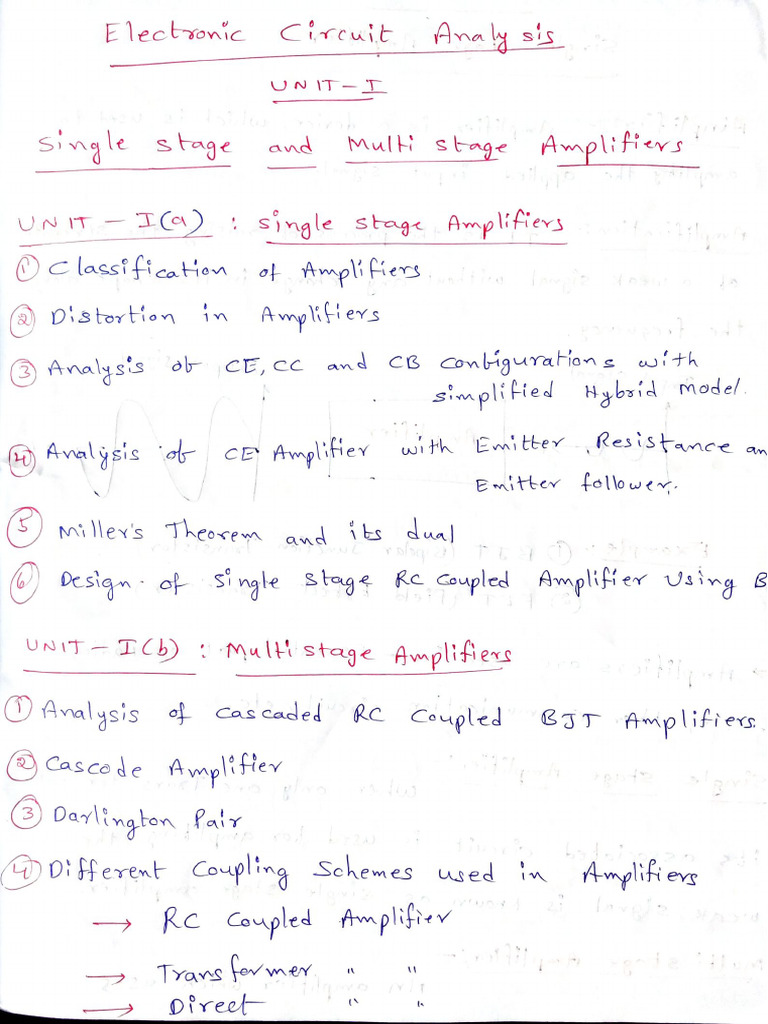 Electronic Circuit Analysis
UNIT-I
Single stage and Multi stage Amplifiers
UNIT-I(a) : Single stage Amplifiers
① Classification of Amplifiers
② Distortion in Amplifiers
③ Analysis of CE, CC and CB Configurations with
simplified Hybrid model.
④ Analysis of CE Amplifier with Emitter Resistance an
Emitter follower.
⑤ Miller's Theorem and its dual
⑥ Design of Single Stage RC Coupled Amplifier Using B
UNIT-I(b) : Multi stage Amplifiers
① Analysis of Cascaded RC Coupled BJT Amplifiers.
② Cascode Amplifier
③ Darlington Pair
④ Different Coupling Schemes used in Amplifiers
→ RC Coupled Amplifier
→ Transformer " "
→ Direct " "